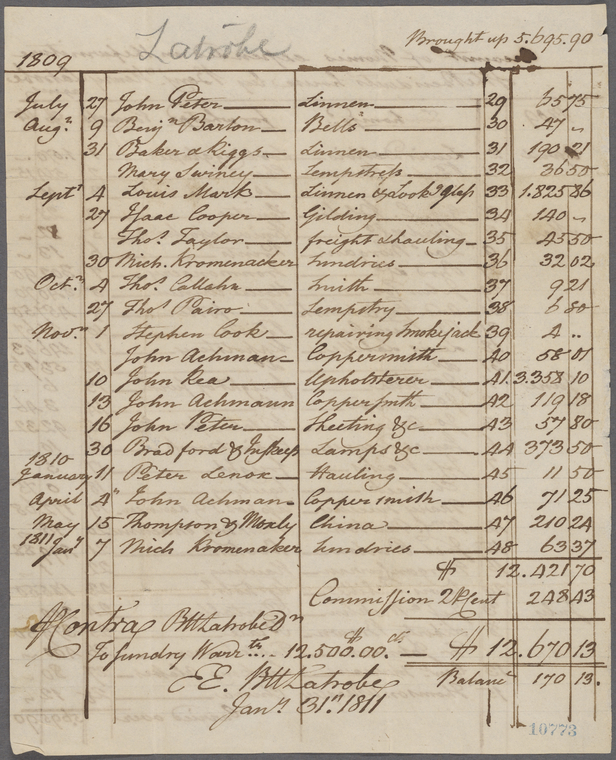 Latrobe
Brought up 5.695.90
1809
July 27 John Peter Linnen 29 65 75
Augt 9 Benjn Barton Bells 30 47 "
31 Baker & Riggs Linnen 31 190 21
Mary Surney Sempstress 32 36 50
Septr 4 Louis Mark Linnen & Look'g Glass 33 1.825 86
27 Isaac Cooper Gilding 34 140 "
Thos Taylor freight & hauling 35 45 50
30 Mich. Kromenacker Sundries 36 32 02
Octr 4 Thos Callahn Smith 37 9 21
27 Thos Pairo Sempstry 38 6 80
Novr 1 Stephen Cook repairing Smoke jack 39 4 ..
John Achman Coppersmith 40 58 01
10 John Rea Upholsterer 41 3.358 10
13 John Achmann Coppersmith 42 119 18
16 John Peter Sheeting &c 43 57 80
30 Bradford & Inskeep Lamps &c 44 373 50
1810
January 11 Peter Lenox Hauling 45 11 50
April 4 John Achman Coppersmith 46 71 25
May 15 Thompson & Moxly China 47 210 24
1811
Jany 7 Mich Kromenaker Sundries 48 63 37
$ 12.421 70
Commission 2 P Cent 248 43
Contra BHLatrobe Dr
To sundry Warrts .... $ 12.500.00.cts $ 12.670 13
E.E. BHLatrobe Balance 170 13.
Jany 31st 1811
10773